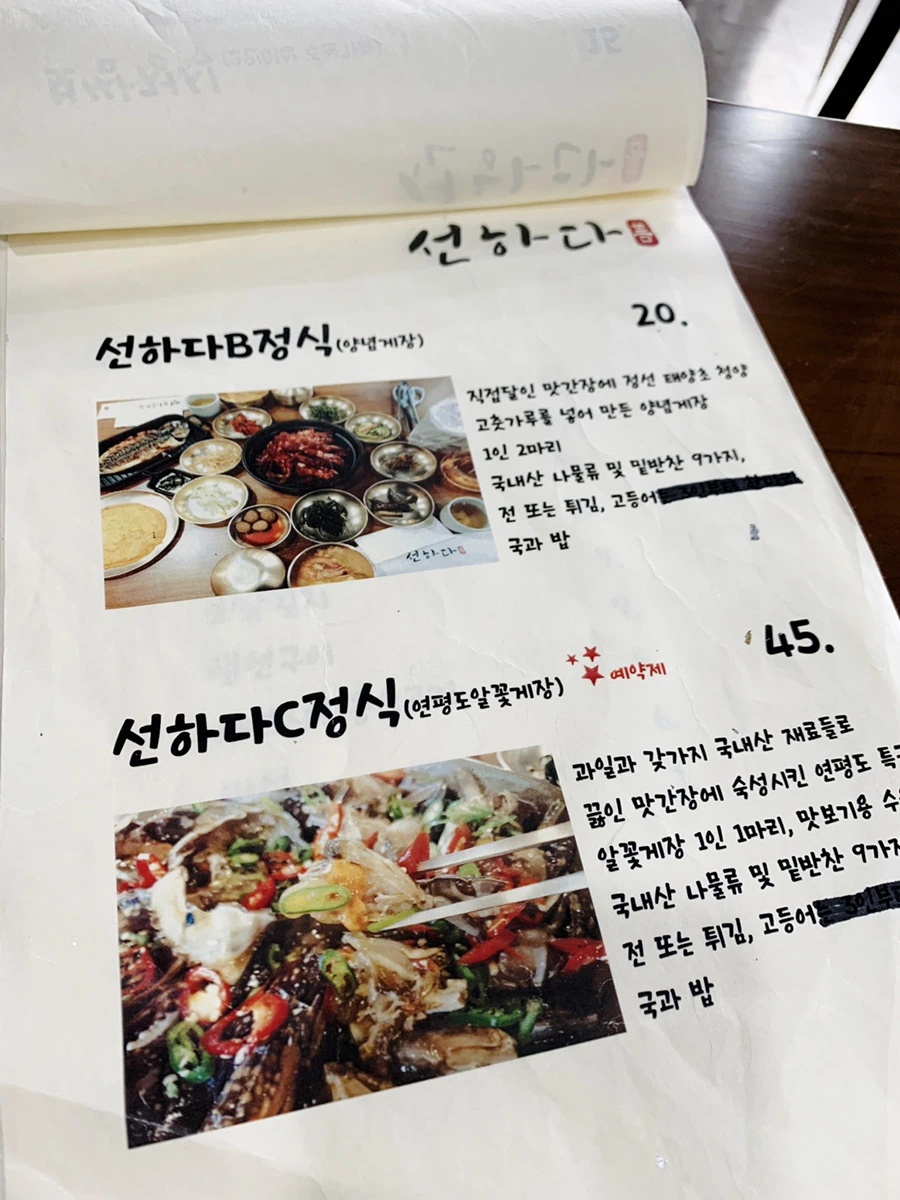 선하다
선하다B정식(양념게장)
20.
직접달인 맛간장에 정선 태양초 청양
고춧가루를 넣어 만든 양념게장
1인 2마리
국내산 나물류 및 밑반찬 9가지,
전 또는 튀김, 고등어
국과 밥
선하다
선하다C정식(연평도알꽃게장)
예약제
45.
과일과 갖가지 국내산 재료들로
끓인 맛간장에 숙성시킨 연평도
알꽃게장 1인 1마리, 맛보기용
국내산 나물류 및 밑반찬 9가지
전 또는 튀김, 고등어
국과 밥